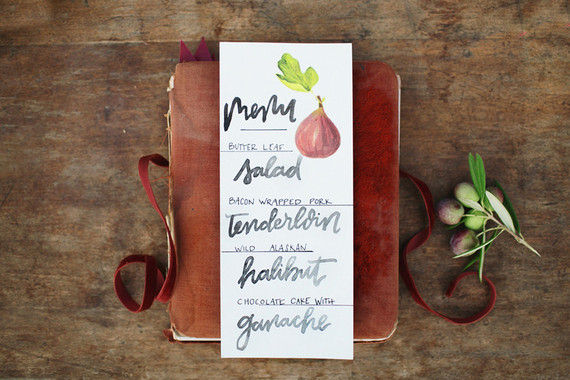 menu
BUTTER LEAF
salad
BACON WRAPPED PORK
tenderloin
WILD ALASKAN
halibut
CHOCOLATE CAKE WITH
ganache